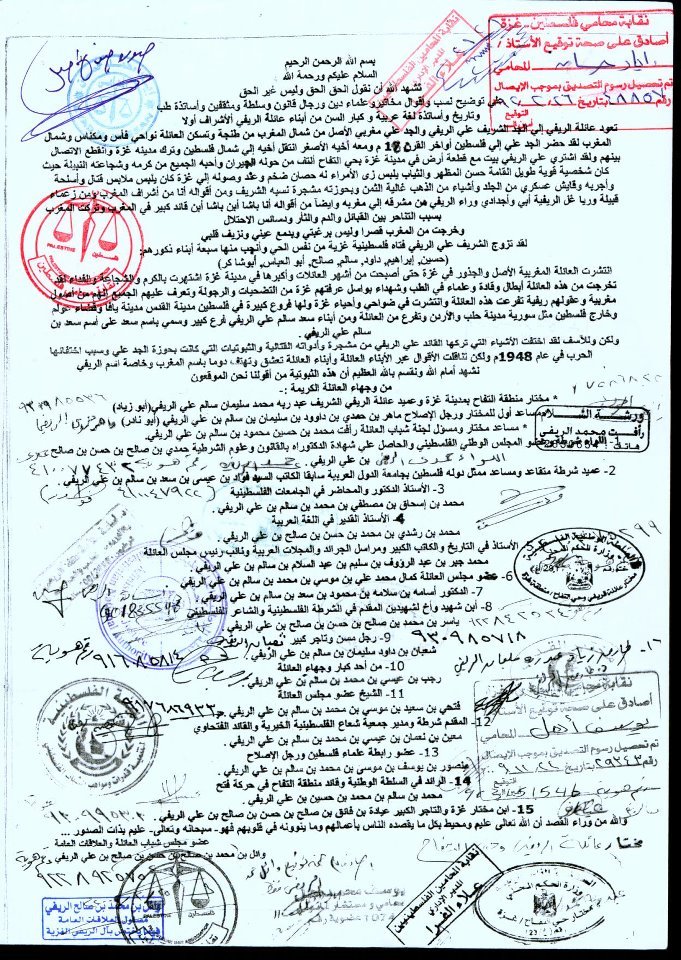 نقابة محامي فلسطين - غزة
أصادق على صحة توقيع الأستاذ /
المحامي
تم تحصيل رسوم التصديق بموجب الايصال
بسم الله الرحمن الرحيم
السلام عليكم ورحمة الله
نشهد الله أن نقول الحق الحق وليس غير الحق
في توضيح نسب وأقوال مخاتير وعلماء دين ورجال قانون وسلطة ومثقفين وأساتذة طب
وتاريخ وأساتذة لغة عربية و كبار السن من أبناء عائلة الريفي الأشراف أولا
تعود عائلة الريفي إلي الجد الشريف علي الريفي والجد علي مغربي الأصل من شمال المغرب من طنجة وتسكن العائلة نواحي فأس ومكناس وشمال
المغرب لقد حضر الجد علي إلي فلسطين أواخر القرن ومعه أخيه الأصغر أنتقل أخيه إلي شمال فلسطين وترك مدينة غزة وأنقطع الاتصال
بينهم ولقد اشتري علي الريفي بيت مع قطعة أرض في مدينة غزة بحي التفاح ألتف من حوله الجيران وأحبه الجميع من كرمه وشجاعته النبيلة حيث
كان شخصية قوية طويل القامة حسن المظهر والثياب يلبس زى الأمراء له حصان ضخم وعند وصوله إلي غزة كان يلبس ملابس قتال وأسلحة
وأجربه وقايش عسكري من الجلد وأشياء من الذهب غالية الثمن وبحوزته مشجرة نسبه الشريف ومن أقواله أنا من أشراف المغرب ومن زعماء
قبيلة وريا غل الريفية أبي وأجدادي وراء الريفي هن مشرقه إلي مغربه وايضا من أقواله أنا باشا أبن باشا أبن قائد كبير في المغرب وتركت المغرب
بسبب التناحر بين القبائل والدم والثأر ودسائس الاحتلال
وخرجت من المغرب قصرا وليس برغبتي وبدمع عيني ونزيف قلبي
لقد تزوج الشريف علي الريفي فتاه فلسطينية غزية من نفس الحي وأنجب منها سبعة أبناء ذكورهم:
(حسين, إبراهيم, داود, سالم, صالح, أبو العباس, أبوشاكر)
انتشرت العائلة المغربية الأصل والجذور في غزة حتى أصبحت من أشهر العائلات وأكبرها في مدينة غزة اشتهرت بالكرم والشجاعة والفداء لقد
تخرجت من هذه العائلة أبطال وقادة وعلماء في الطب وشهداء بواسل عرفتهم غزة من التضحيات والرجولة وتعرف عليهم الجميع إنهم من أصول
مغربية وعقولهم ريفية تفرعت هذه العائلة وانتشرت في ضواحي وأحياء غزة ولها فروع كبيرة في فلسطين مدينة القدس مدينة يافا
وخارج فلسطين مثل سورية مدينة حلب والأردن وتفرع من العائلة ومن أبناء سعد سالم علي الريفي فرع كبير وسمي باسم سعد علي أسم سعد بن
سالم علي الريفي.
ولكن وللأسف لقد اختفت الأشياء التي تركها القائد علي الريفي من مشجرة وأدواته القتالية والثبوتيات التي كانت بحوزة الجد علي وسبب اختفائها
الحرب في عام 1948م ولكن تناقلت الأقوال عبر الأبناء العائلة وأبناء العائلة تعشق وتهتف دوما باسم المغرب وخاصة اسم الريفي
نشهد أمام الله ونقسم بالله العظيم أن هذه الثبوتية من أقولنا نحن الموقعون
من وجهاء العائلة الكريمة :-
* مختار منطقة التفاح بمدينة غزة وعميد عائلة الريفي الشريف عبد ربه محمد سليمان سالم علي الريفي(أبو زياد)
مساعد أول للمختار ورجل الإصلاح ماهر بن حمدي بن داوود بن سليمان بن سالم بن علي الريفي
* مساعد مختار ومسؤل لجنة شباب العائلة رأفت محمد بن حسين محمود بن سالم بن علي الريفي
1- اللواء شرطة وعضو المجلس الوطني الفلسطيني والحاصل علي شهادة الدكتوراه بالقانون وعلوم الشرطية حمدي بن صالح بن حسن بن صالح
بن علي الريفي
2- عميد شرطة متقاعد ومساعد ممثل دوله فلسطين بجامعة الدول العربية سابقا الكاتب السيد فؤاد بن عيسى بن سعد بن سالم بن علي الريفي.
3- الأستاذ الدكتور والمحاضر في الجامعات الفلسطينية
محمد بن إسحاق بن مصطفي بن محمد بن سالم بن علي الريفي.
4- الأستاذ القدير في اللغة العربية
محمد بن رشدي بن محمد بن حسن بن صالح بن علي الريفي.
الأستاذ في التاريخ والكاتب الكبير ومراسل الجرائد والمجلات العربية ونائب رئيس مجلس العائلة
محمد جبر بن عبد الرؤوف بن سليم بن عبد السلام بن سالم بن علي الريفي.
6- عضو مجلس العائلة كمال محمد علي بن موسي بن محمد بن سالم بن علي الريفي.
7- الدكتور أسامه بن سلامه بن محمود بن سعد بن سالم بن علي الريفي.
8- أبن شهيد وأخ لشهيدين المقدم في الشرطة الفلسطينية والشاعر الفلسطيني
ياسر بن محمد بن صالح بن حسن بن صالح بن علي الريفي.
9- رجل مسن وتاجر كبير
شعبان بن داود سليمان بن سالم بن علي الريفي.
10- من أحد كبار وجهاء العائلة
رجب بن عيسي بن محمد بن سالم بن علي الريفي
11- الشيخ عضو مجلس العائلة
فتحي بن سعيد بن موسي بن محمد بن سالم بن علي الريفي
12- المقدم شرطة ومدير جمعية شعاع الفلسطينية الخيرية والقائد الفتحاوي
معين بن نعمان بن عيسي بن محمد بن سالم بن علي الريفي.
13- عضو رابطة علماء فلسطين ورجل الإصلاح
منصور بن يوسف بن موسى بن محمد بن سالم بن علي الريفي.
14- الرائد في السلطة الوطنية وقائد منطقة التفاح في حركة فتح
سالم بن محمد بن حسين بن علي الريفي.
15- ابن مختار غزة والتاجر الكبير عيادة بن فائق بن صالح بن حسن بن صالح بن علي الريفي.
والله من وراء القصد أن الله تعالى عليم ومحيط بكل ما يقصده الناس بأعمالهم وما ينوونه في قلوبهم فهو- سبحانه وتعالى- عليم بذات الصدور ...
عضو مجلس شباب العائلة والعلاقات العامة
وائل بن محمد بن صالح بن حسن بن صالح بن علي الريفي
ورشة السلام
رأفت محمد الريفي
930985718
916858140
نقابة محامي فلسطين - غزة
أصادق على صحة توقيع الأستاذ /
المحامي
تم تحصيل رسوم التصديق بموجب الايصال
نقابة المحامين الفلسطينيين
المدير الإداري
علاء الفرا
وائل بن محمد بن صالح الريفي
مسئول العلاقات العامة